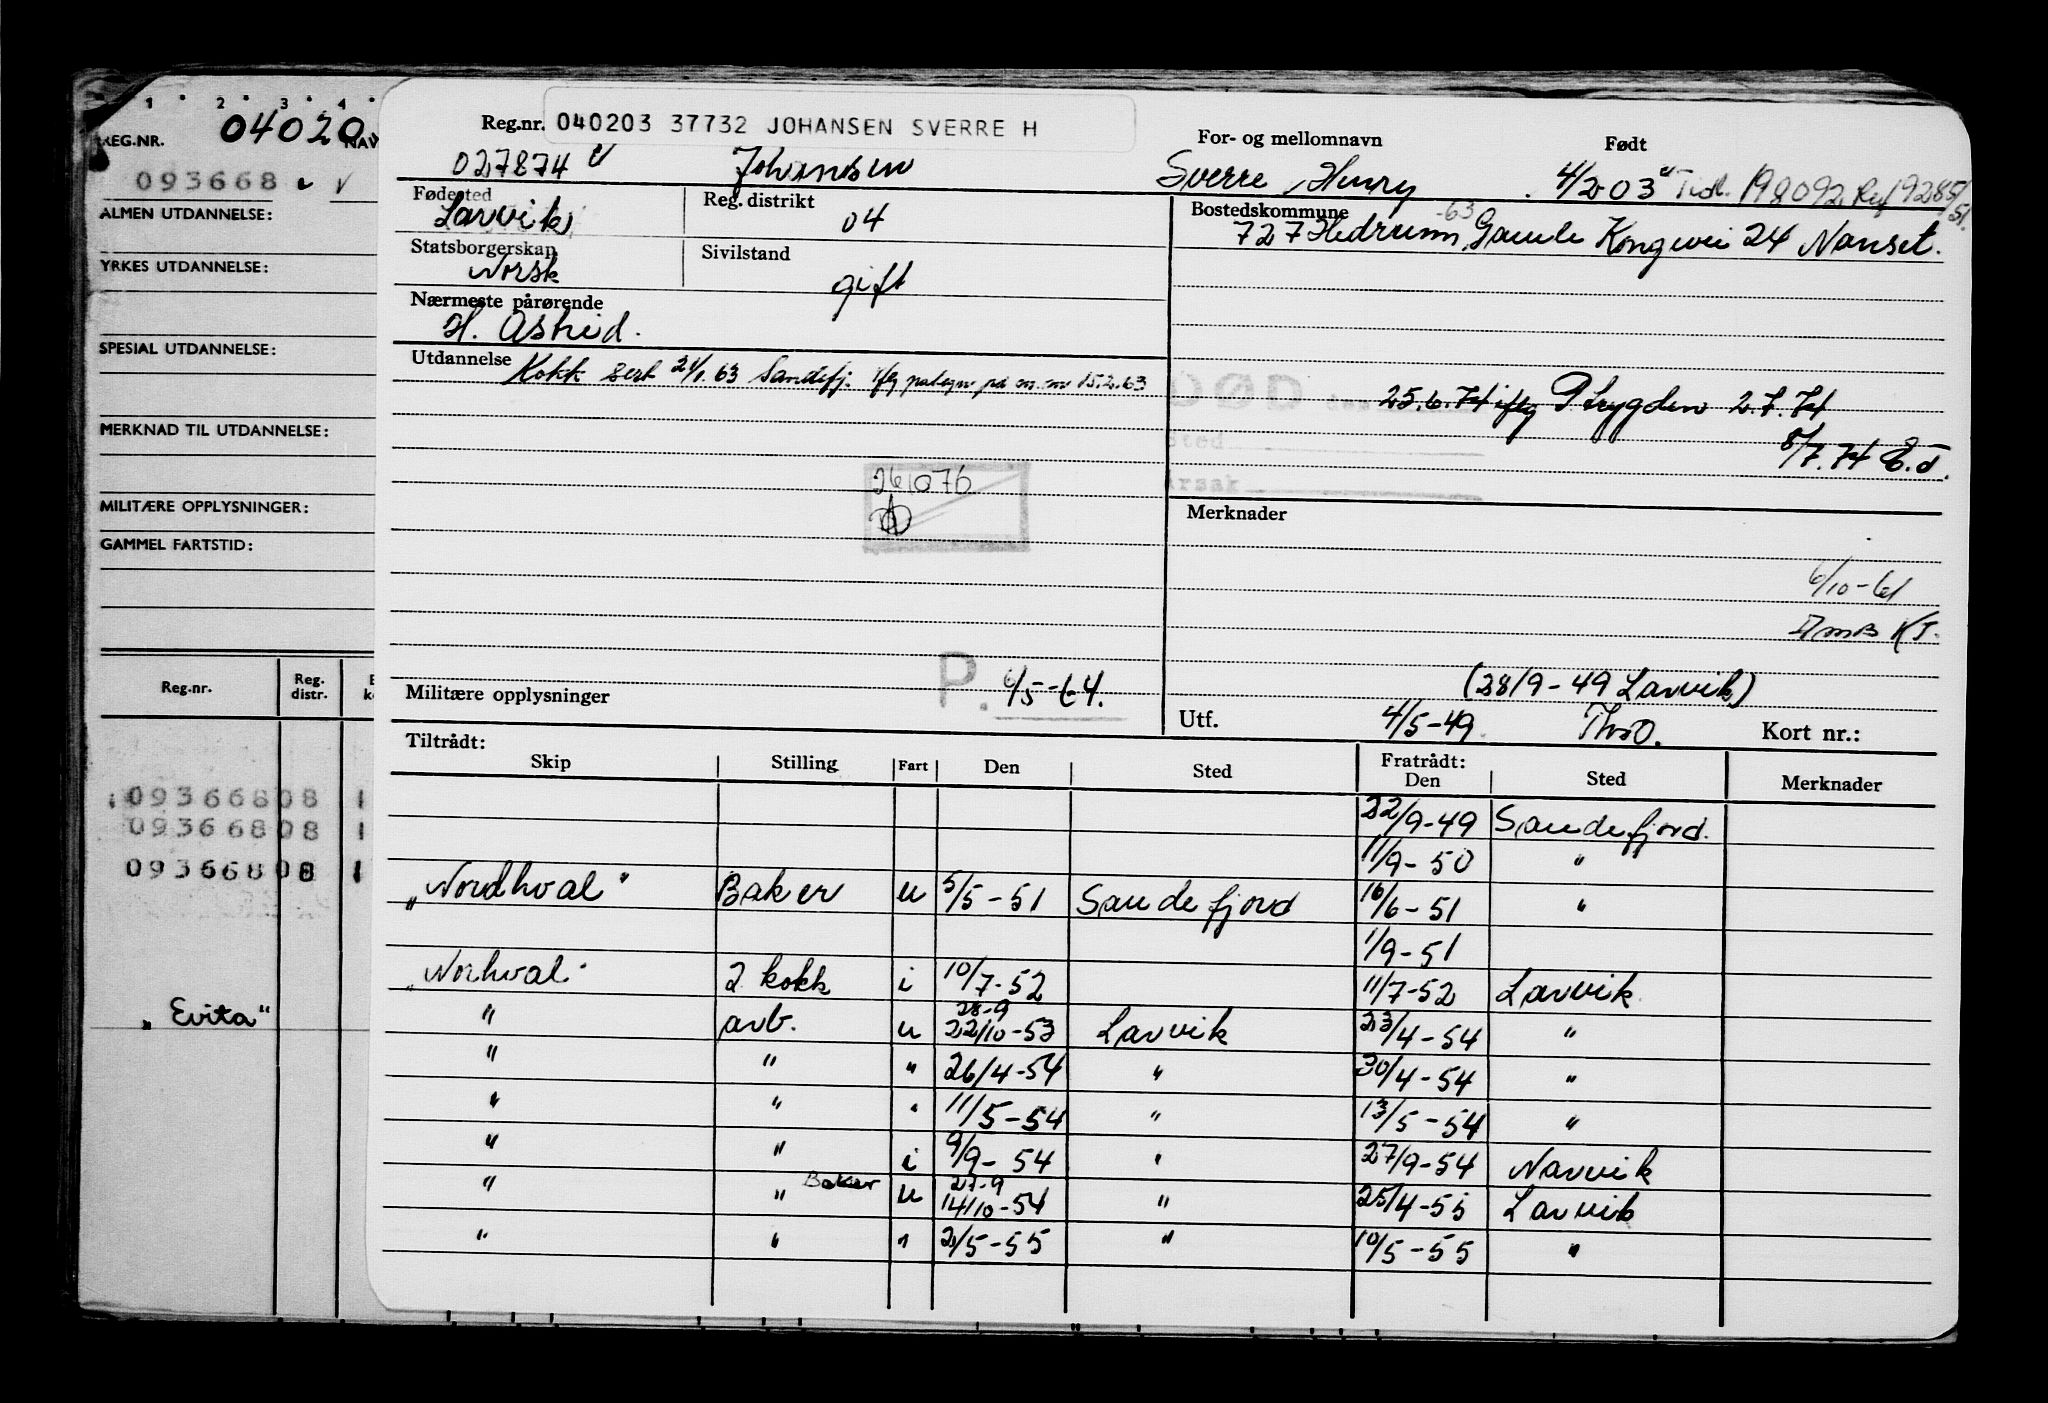 1 2 3 4
REG.NR. 04020 NAV
093668 v
ALMEN UTDANNELSE:
YRKES UTDANNELSE:
SPESIAL UTDANNELSE:
MERKNAD TIL UTDANNELSE:
MILITÆRE OPPLYSNINGER:
GAMMEL FARTSTID:
Reg.nr. Reg. distr.
09366808 1
09366808 1
09366808 1
"Evita"
Reg.nr. 040203 37732 JOHANSEN SVERRE H
For- og mellomnavn Født
027874 Johansen Sverre Henry 4/2 03 Tidl. 198092
Fødested Reg. distrikt Bostedskommune
Larvik 04 727 Hedrum -63 Gamle Kongevei 24 Nanset.
Statsborgerskap Sivilstand
Norsk gift
Nærmeste pårørende
H. Astrid.
Utdannelse Kokk sert 24/1.63 Sandefj. iflg på m.m 15.2.63
DØD den 25.6.74 iflg P trygden 2.7.74
sted 8/7.74
Årsak
261076
Merknader
6/10-61
P. 6/5-64.
(28/9-49 Larvik)
Militære opplysninger
Utf. 4/5-49 Kort nr.:
Tiltrådt: Fratrådt:
Skip Stilling Fart Den Sted Den Sted Merknader
22/9-49 Sandefjord.
11/9-50 "
"Nordhval" Baker u 5/5-51 Sandefjord 16/6-51 "
1/9-51
"Norhval" 2 kokk i 10/7-52 11/7-52 Larvik
" arb. u 28-9 22/10-53 Larvik 23/4-54 "
" " " 26/4-54 " 30/4-54 "
" " " 11/5-54 " 13/5-54 "
" " i 9/9-54 " 27/9-54 Narvik
" " Baker u 27-9 14/10-54 " 25/4-55 Larvik
" " " 2/5-55 " 10/5-55 "